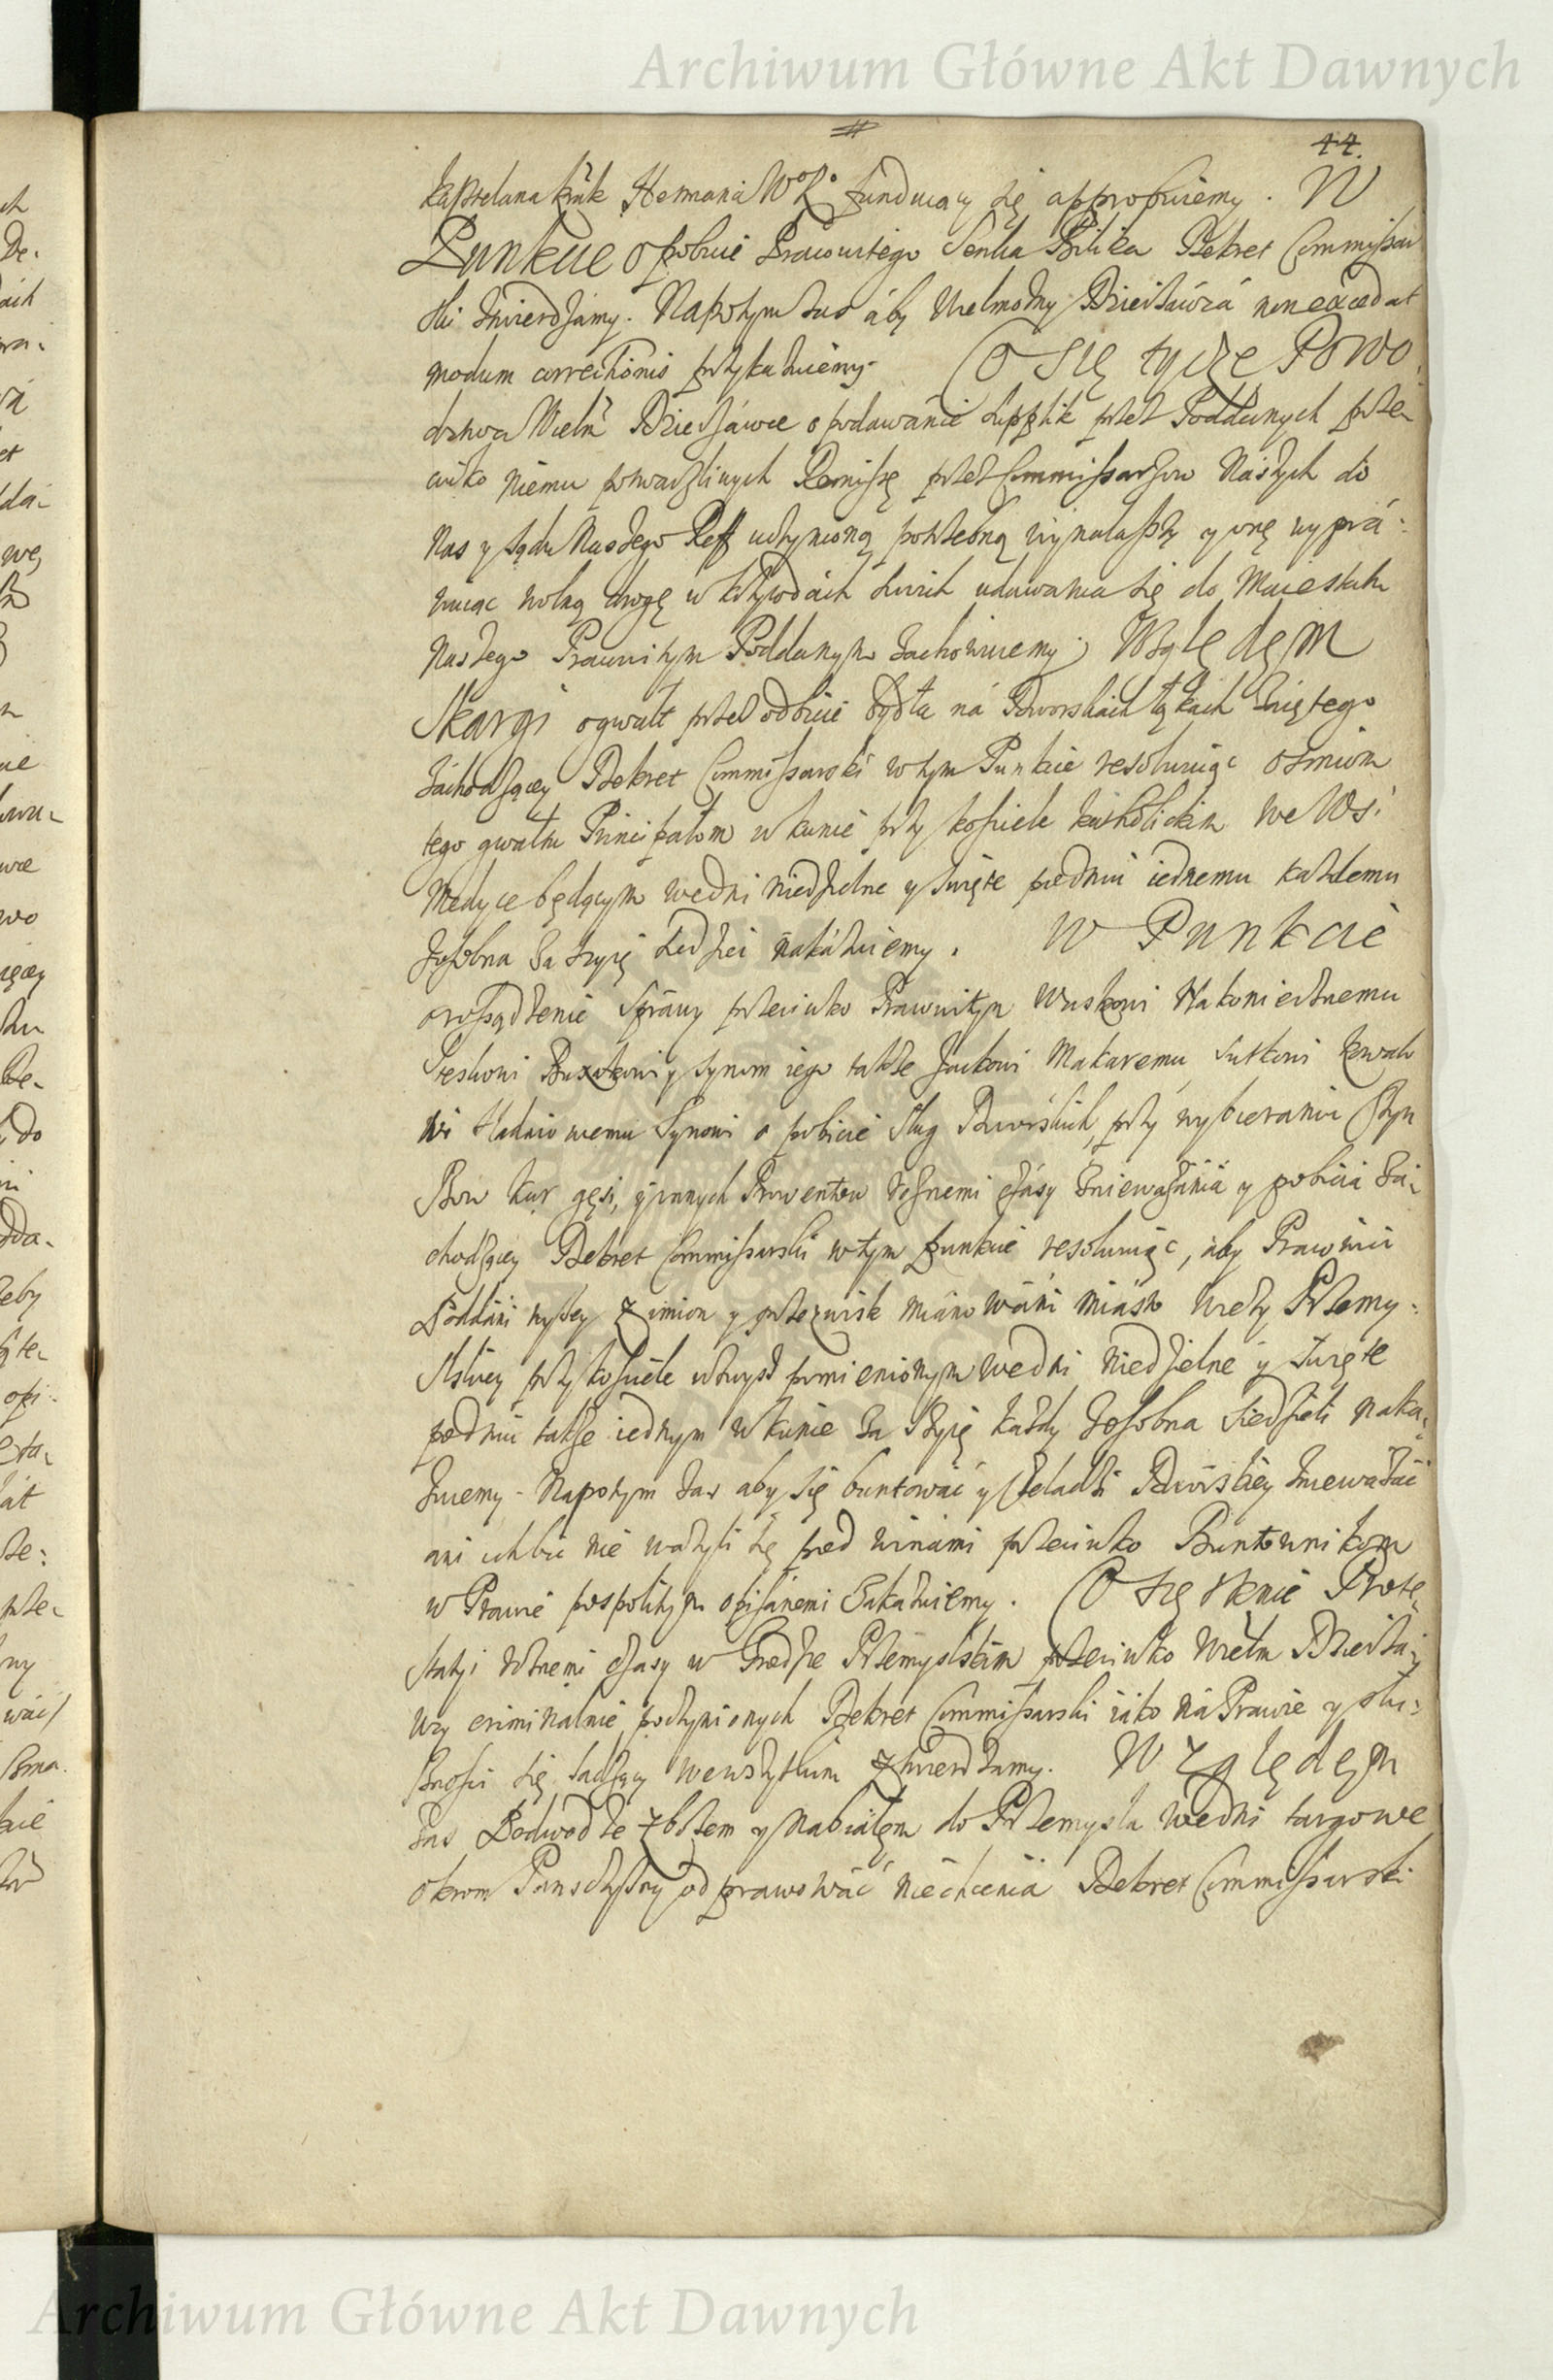 Archiwum Główne Akt Dawnych
44.
Kapłana Hermana funduiący się approbuiemy. W
Punkcie o pobicie Prawuiącego Senka Bilika Dekret Commissar
ski ztwierdzamy. Napotym zas aby Wielmożny Dzierżawca non excedat
modum correctionis przykazuiemy. Co się tycze Powo
dztwa Wielm Dzierżawce o podawanie supplik przez Poddanych prze
ciwko niemu Remissę przez Commissarzow Naszych do
Nas y sądu Naszego Reff uczynioną potrzebną wynalasszy y onę uypra:
wuiąc wolną drogę w krzywdach swoich udawania się do Maiestatu
Naszego Prawuiącym Poddanym zachowuiemy. Względem
Skargi o gwałt przez odbicie bydła na Dworskich łąkach zaiętego
zachodzącey Dekret Commissarski w tym Punkcie resolwuiąc osmiom
tego gwałtu Principałom w kunie przy kosciele katholickim we Wsi
Medyce będącym we dni niedzielne y swięte po dniu iednemu każdemu
zosobna za szyię siedziec nakazuiemy. W Punkcie
o rossądzenie sprawy przeciwko Prawuiącym Waskowi Nakoniecznemu
synom iego także Jackowi Makaremu
Synowi o pobicie sług Dworskich, przy wybieraniu Czyn
szow kur gęsi, y innych Prowentow rożnemi czasy zniewazania y pobicia za
chodzącey Dekret Commissarski w tym punkcie resolwuiąc, aby Prawuiący
Poddani wyżey z imion y przezwisk mianowani miasto wieży Przemy:
slskiey przy kosciele zwysz pomienionym we dni niedzielne y swięte
po dniu także iednym w kunie za szyię każdy zosobna siedzieli naka
zuiemy. Napotym zas aby się buntowac y czeladzi Dworskiey zniewazac
ani ich bic nie ważyli się pod winami przeciwko Buntownikom
w Prawie pospolitym opisanemi zakazuiemy. Co się tknie Prote
stacyi rożnemi czasy w Grodzie Przemyslskim przeciwko Wielm Dzierża
wcy criminalnie poczynionych Dekret Commissarski iako na Prawie y słu:
sznosci się sadzący we wszytkim ztwierdzamy. Względem
zas Podwod ze zbożem y nabiałem do Przemysla we dni targowe
okrom Panszczyzny odprawowac niechcenia Dekret Commissarski
Archiwum Główne Akt Dawnych